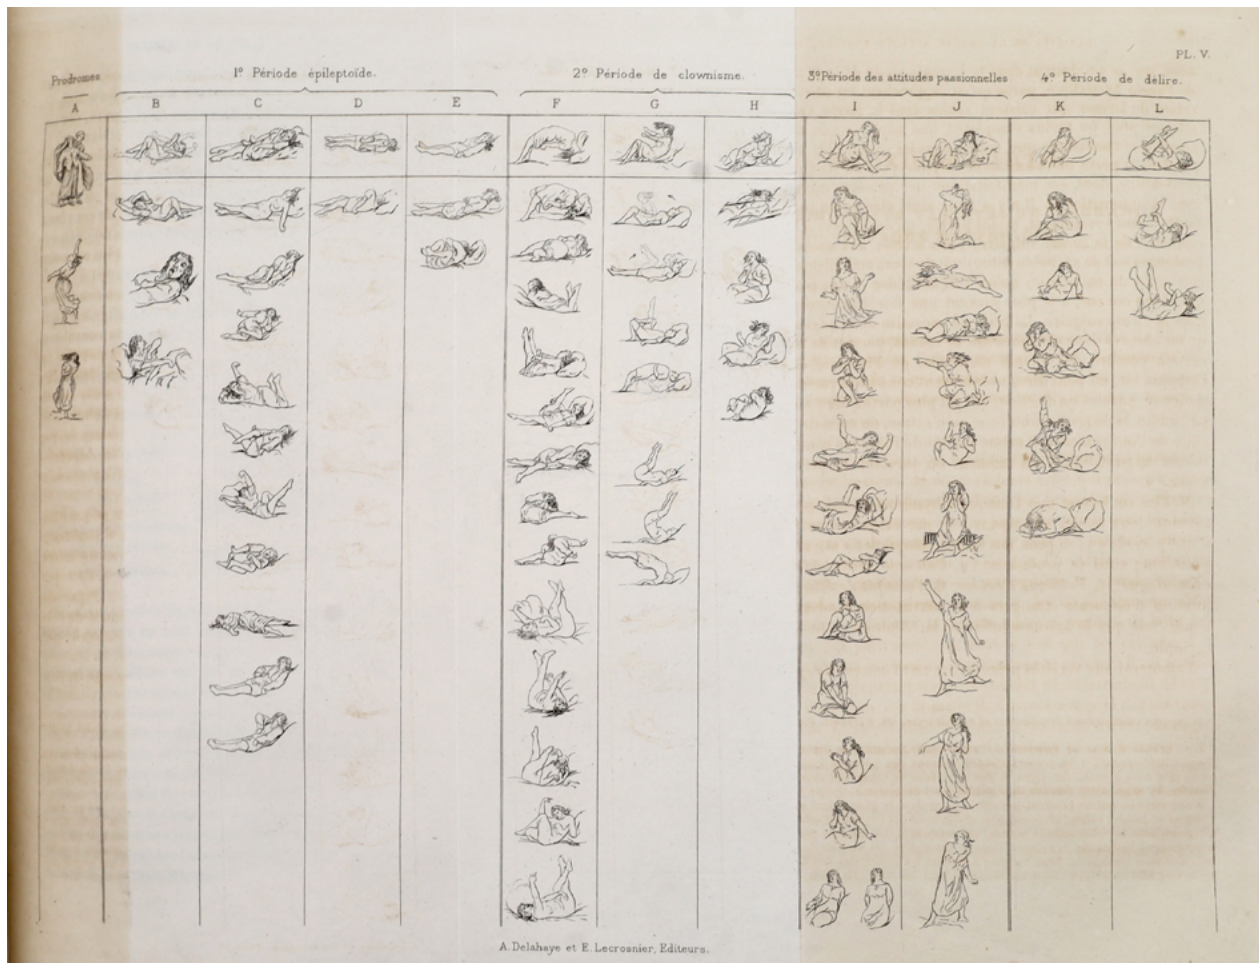 PL. V.
Prodromes
1º Période épileptoïde.
2º Période de clownisme.
3º Période des attitudes passionnelles
4º Période de délire.
A B C D E F G H I J K L
A. Delahaye et E. Lecrosnier, Editeurs.